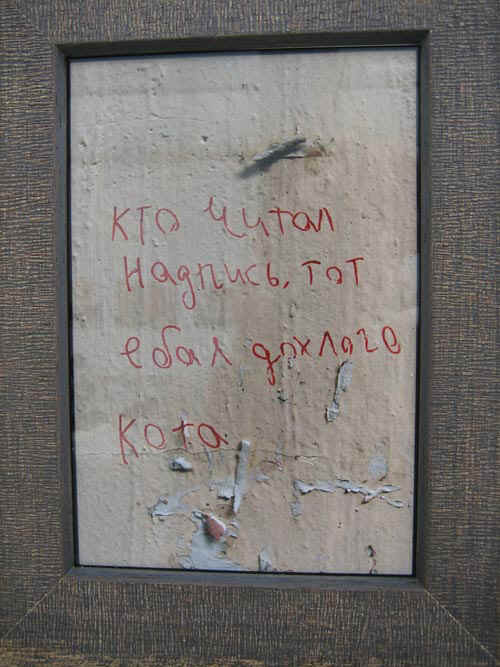 кто читал
надпись, тот
ебал дохлого
кота